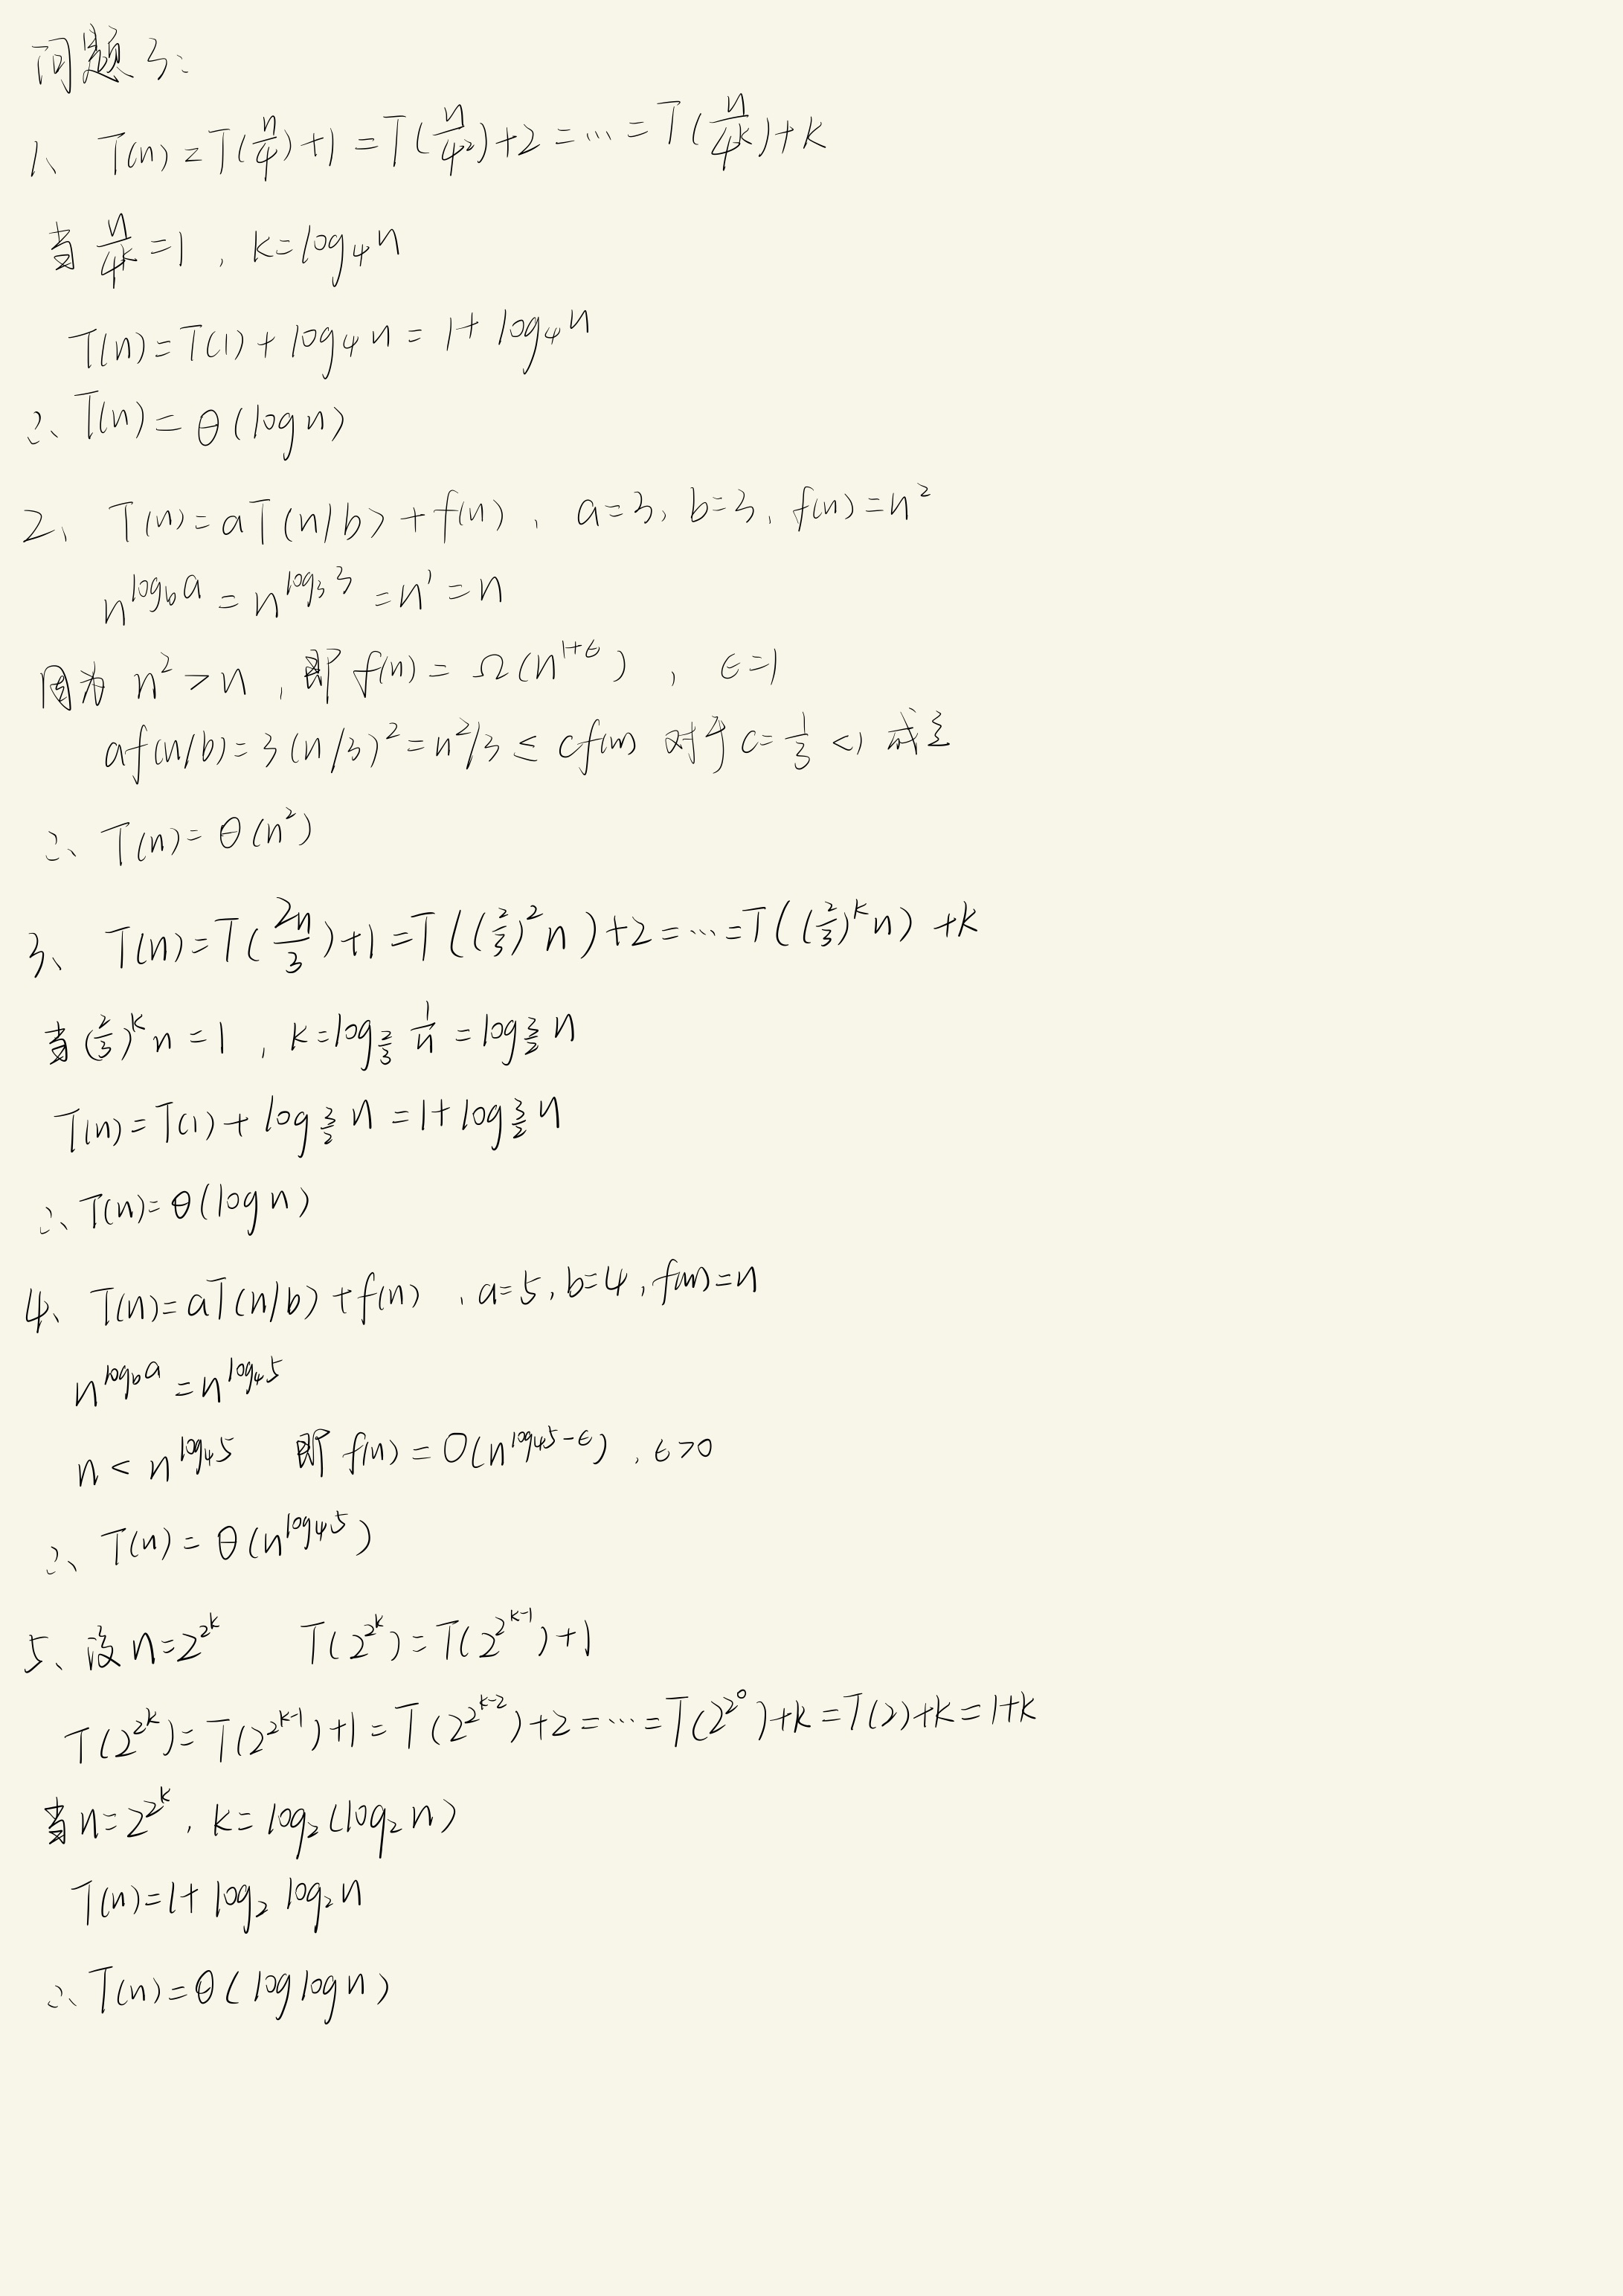 问题3:
1、 T(n)=T(n/4)+1=T(n/4²)+2=…=T(n/4ᵏ)+k
当 n/4ᵏ=1 , k=log₄n
T(n)=T(1)+log₄n=1+log₄n
∴ T(n)=θ(logn)
2、 T(n)=aT(n/b)+f(n) , a=3, b=3, f(n)=n²
n^(log_b a)=n^(log₃3)=n¹=n
因为 n²>n , 即 f(n)=Ω(n^(1+ϵ)) , ϵ=1
af(n/b)=3(n/3)²=n²/3≤cf(n) 对于 c=1/3<1 成立
∴ T(n)=θ(n²)
3、 T(n)=T(2n/3)+1=T((2/3)²n)+2=…=T((2/3)ᵏn)+k
当(2/3)ᵏn=1 , k=log_(2/3) 1/n=log_(3/2) n
T(n)=T(1)+log_(3/2) n=1+log_(3/2) n
∴ T(n)=θ(logn)
4、 T(n)=aT(n/b)+f(n) , a=5, b=4, f(n)=n
n^(log_b a)=n^(log₄5)
n<n^(log₄5) 即 f(n)=O(n^(log₄5-ϵ)) , ϵ>0
∴ T(n)=θ(n^(log₄5))
5、 设 n=2^(2^k) T(2^(2^k))=T(2^(2^(k-1)))+1
T(2^(2^k))=T(2^(2^(k-1)))+1=T(2^(2^(k-2)))+2=…=T(2^(2^0))+k=T(2)+k=1+k
当 n=2^(2^k) , k=log₂(log₂n)
T(n)=1+log₂log₂n
∴ T(n)=θ(loglogn)